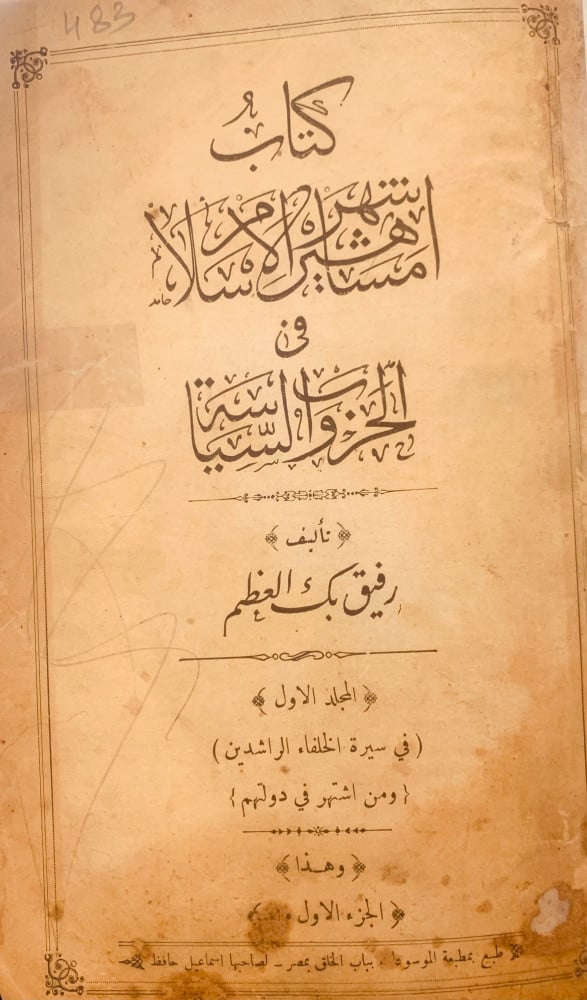 483
كتابُ
اشهر
مشاهير الاسلام
فى
الحرب والسّياسة
﴿ تأليف ﴾
رفيق بك العظم
﴿ المجلد الاول ﴾
( في سيرة الخلفاء الراشدين )
{ ومن اشتهر في دولتهم }
﴿ وهــذا ﴾
﴿ الجزء الاول ﴾
﴿ طبع بمطبعة الموسوعات بباب الخلق بمصر ــ لصاحبها اسماعيل حافظ ﴾